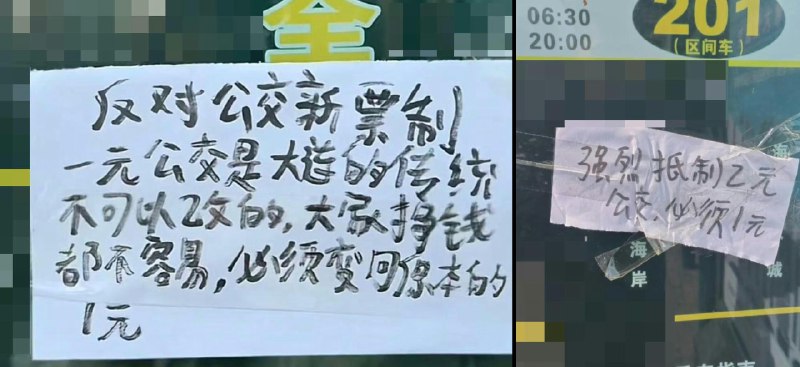 全
反对公交新票制
一元公交是大连的传统
不可以改的,大家挣钱
都不容易,必须变回原本的
1元
06:30
20:00
201
(区间车)
强烈抵制2元
公交,必须1元
海
岸
城